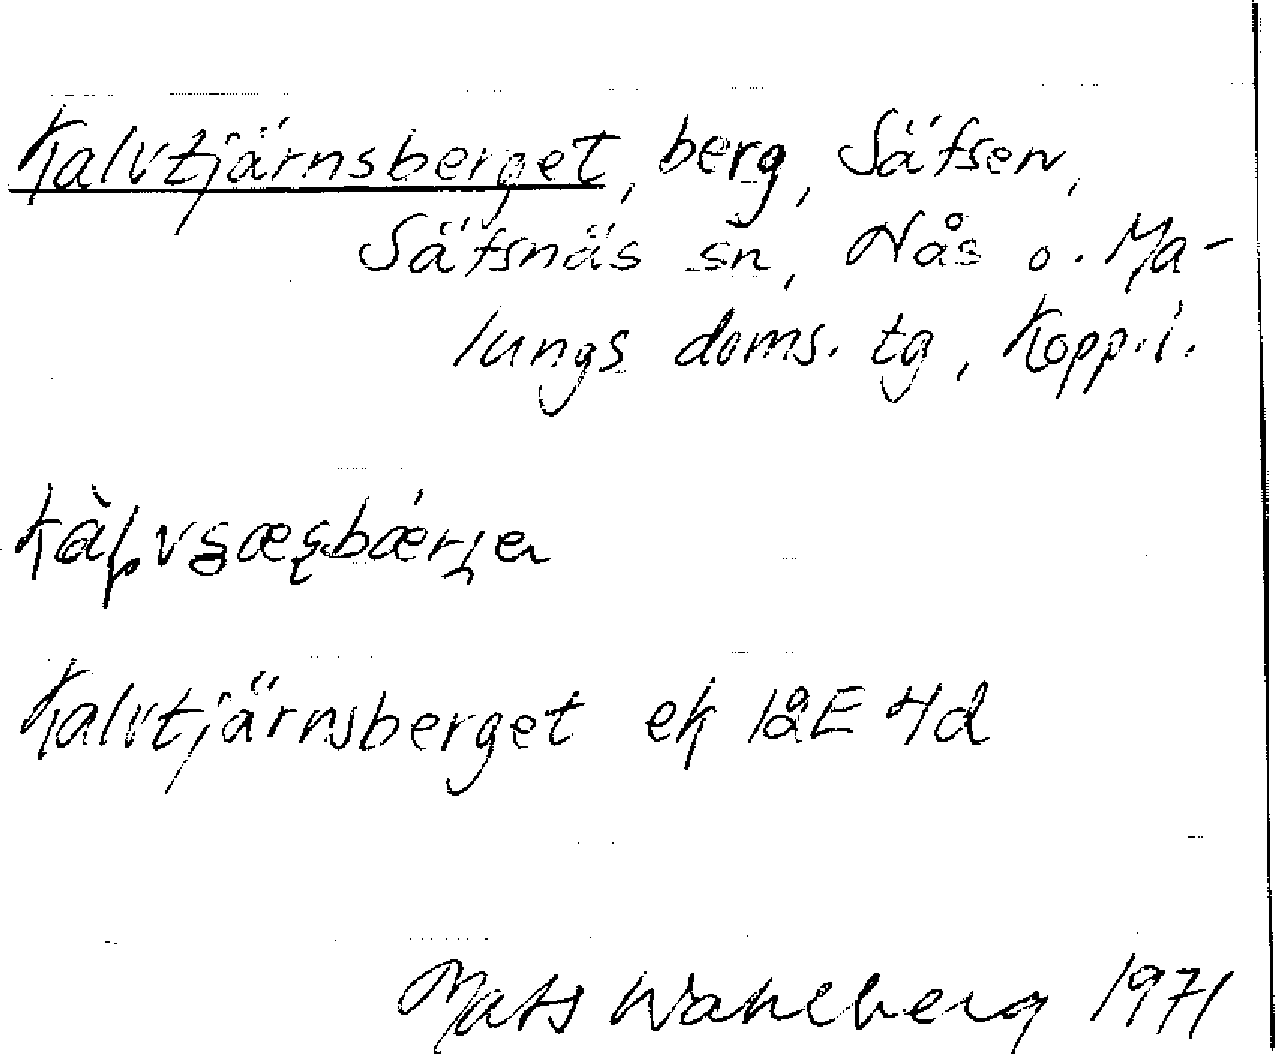 Kalvtjärnsberget, berg, Säfsen,
Säfsnäs sn, Nås o. Ma-
lungs doms. tg, Kopp. l.
Kalvtjärnsberget ek 12E 4d
Mats Wahlberg 1971